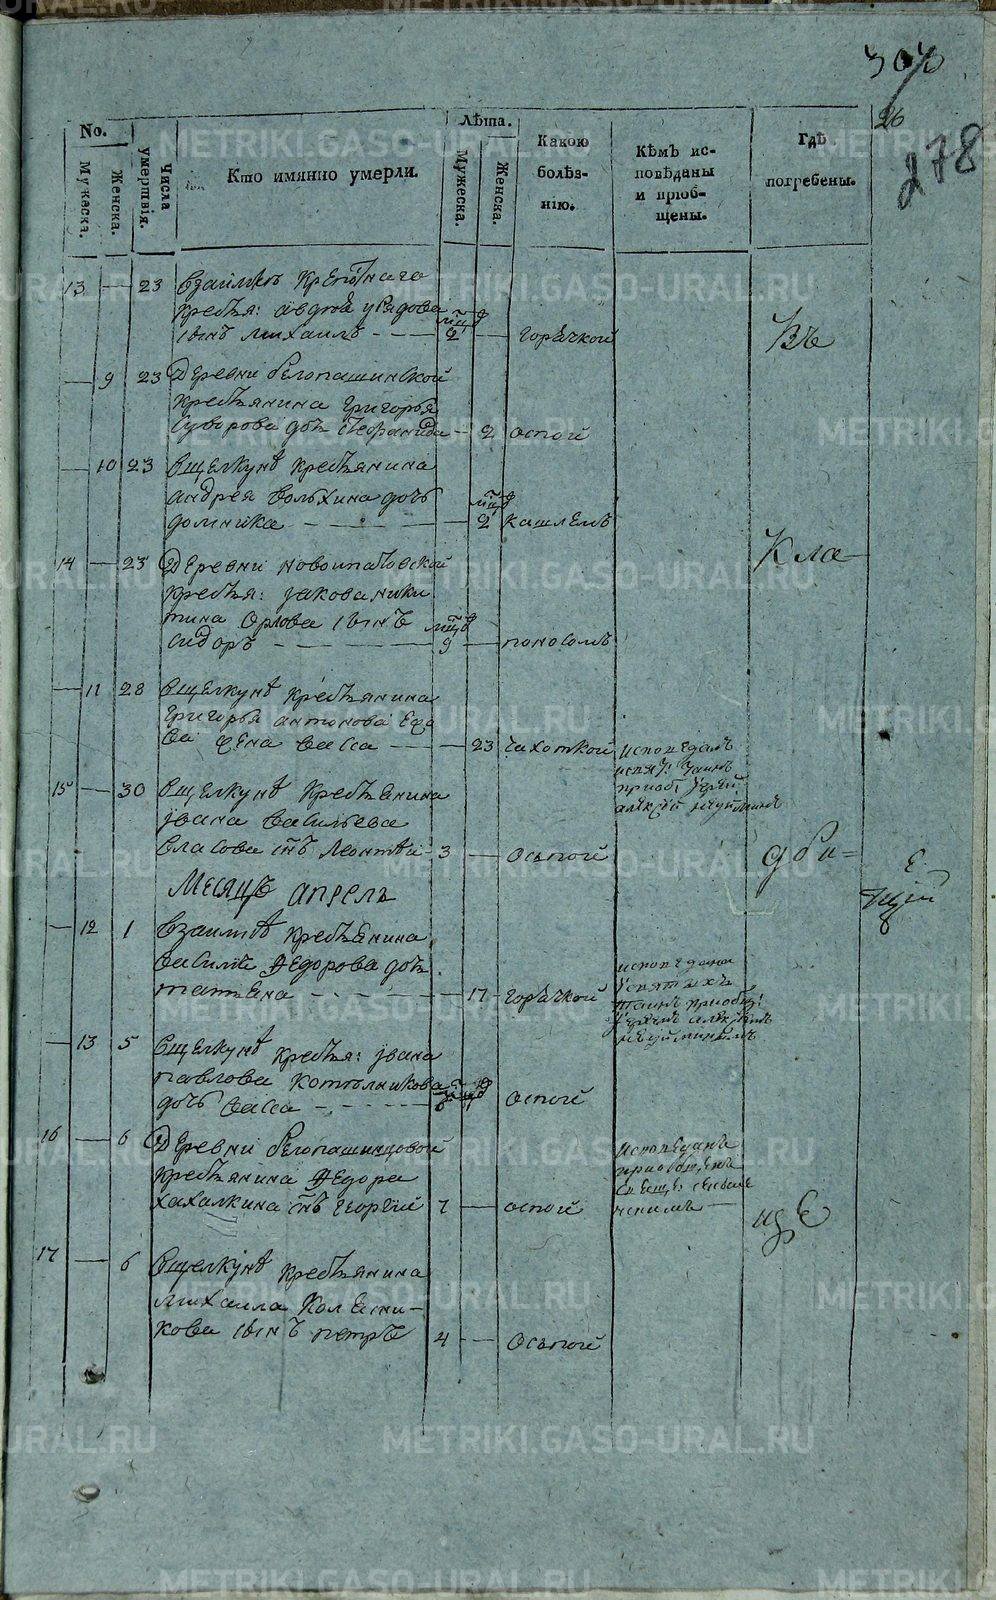 26
278
No.
Мужеска.
Женска.
Числа умертвія.
Кто имянно умерли.
Лѣта.
Мужеска.
Женска.
Какою болѣзнію.
Кѣмъ исповѣданы и пріобщены.
Гдѣ погребены.
13 — 23 Взаимкѣ крепостнаго
крестья: авдѣя урядова
сынъ михаилъ — 2 — горячкой
Къ
— 9 23 Деревни белопашинской
крестьянина григорья
Суворова доч стефанида — 2 оспой
— 10 23 Вщелкунѣ крестьянина
андрея Вольхина дочь
домника — — 2 кашлемъ
Кла-
14 — 23 Деревни новоипатовской
крестья: јакова ники
тина Орлова сынъ
сидоръ — 9 — поносомъ
— 11 28 Вщелкунѣ крестьянина
григорья антонова
жена васса — — 23 чахоткой
исповедана
приобщ: іерей
15 — 30 Вщелкунѣ крестьянина
јвана васильева
власова снъ леонтей — 3 — Осьпой
дби=
щей
Месяцъ апрель
— 12 1 Взаимкѣ крестьянина
василія Федорова доч
татьяна — — 17 — горячкой
исповедана
— 13 5 Вщелкунѣ крестья: јвана
павлова котельникова
дочь васса — оспой
16 — 6 Деревни белопашинцовой
крестьянина Федора
хахалкина снъ георгій 7 — оспой
исповеданъ
приобщенъ
17 — 6 Вщелкунѣ крестьянина
михаила Колесни-
кова сынъ петръ 4 — Осьпой
METRIKI.GASO-URAL.RU